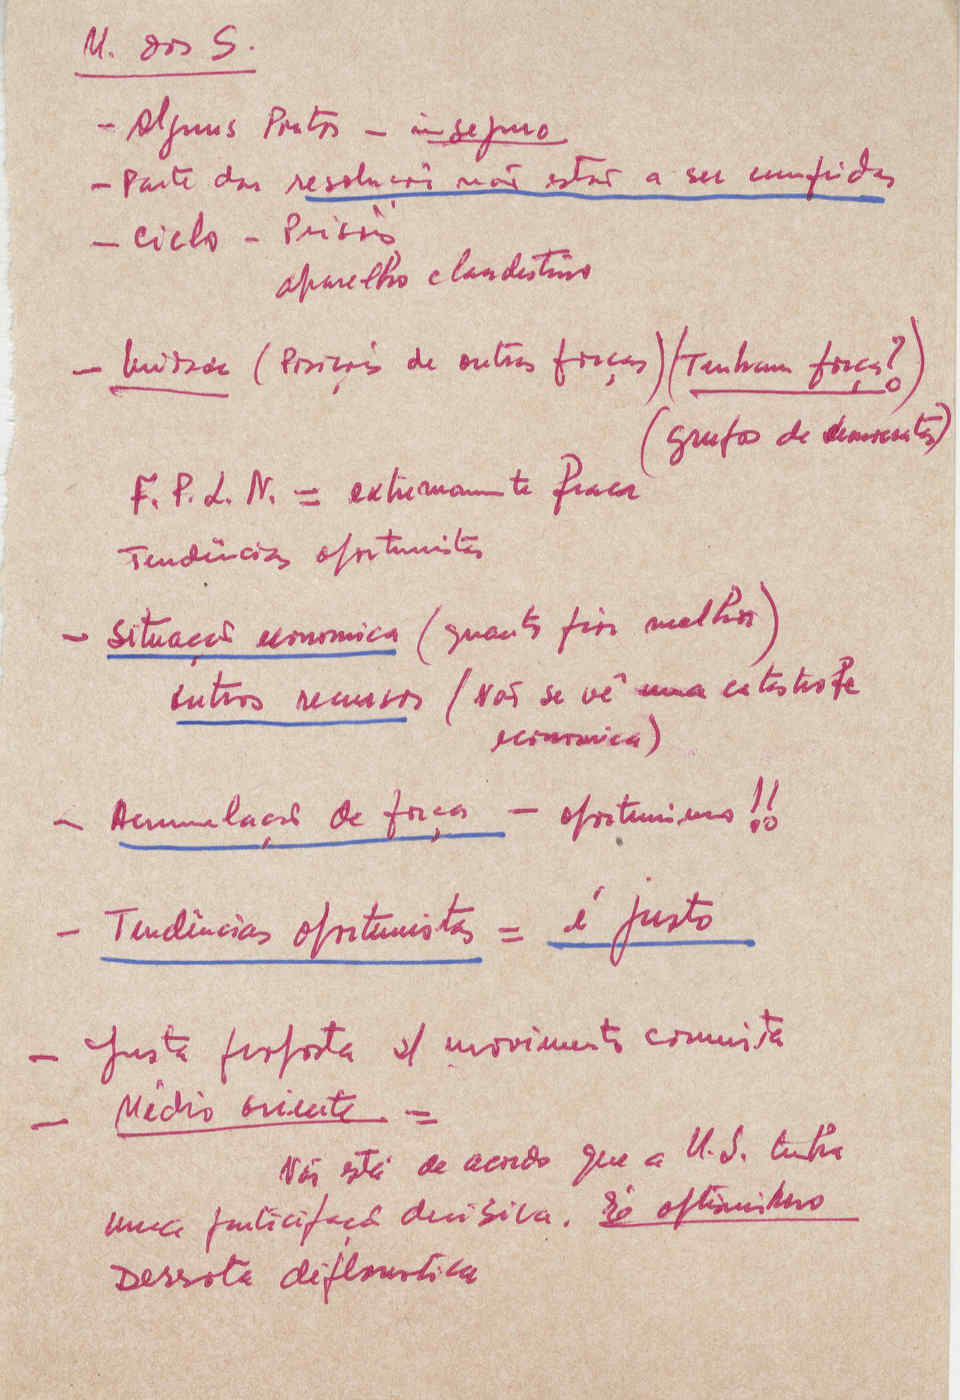 M. dos S.
- Alguns Pontos - inseguro
- Parte das resoluções não estão a ser cumpridas
- Ciclo - Prisões
aparelho clandestino
- Unidade (Posições de outras forças) (Tenham força?)
(grupos de democratas)
F. P. L. N. = extremamente fraca
Tendências oportunistas
- Situação economica (quanto pior melhor)
outros recursos (Não se vê uma catastrofe
economica)
- Acumulação de forças - oportunismo!!
- Tendências oportunistas = é justo
- Justa proposta s/ movimento comunista
- Médio oriente =
Não está de acordo que a U.S. tenha
uma participação decisiva. Só optimismo
Derrota diplomatica